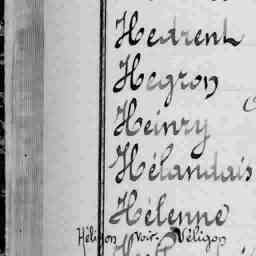 Hedrenh
Hegron
Heinry
Hélandais
Hélenne
Héligon voir Véligon